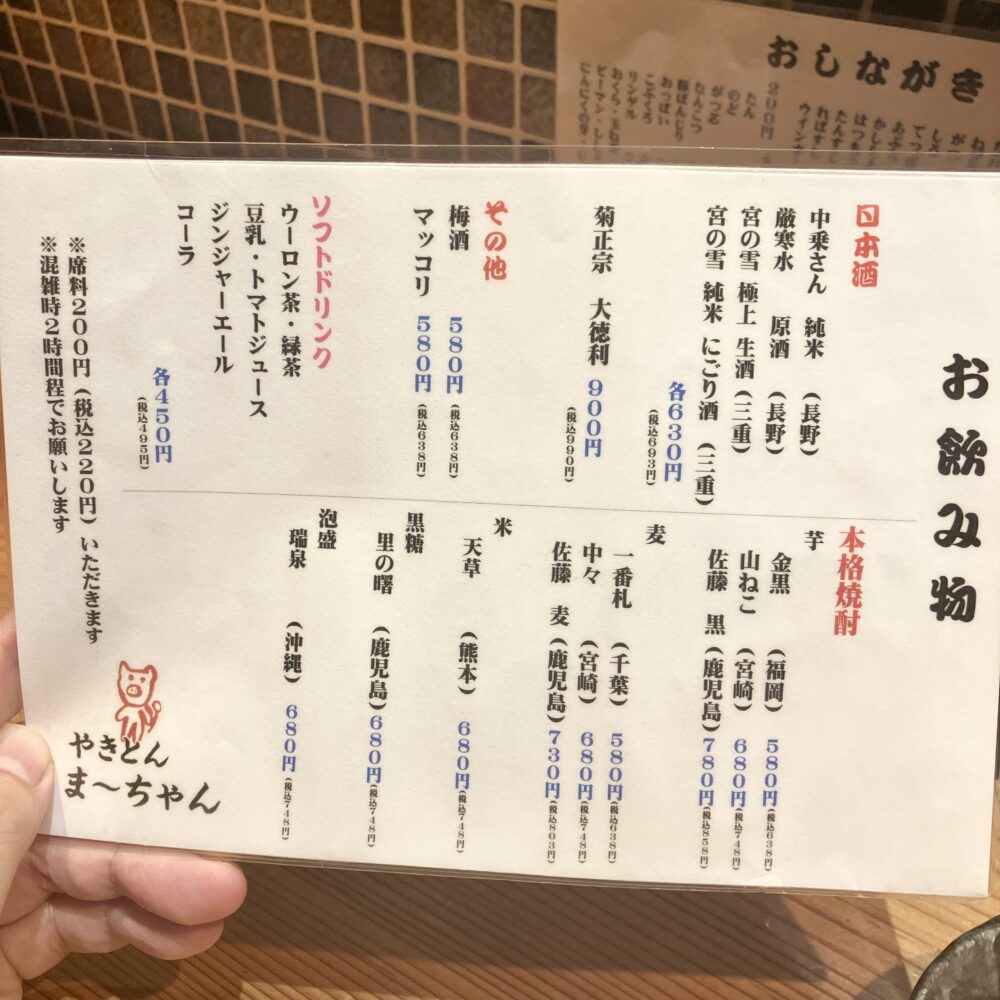 お飲み物
日本酒
中乗さん 純米 (長野)
厳寒水 原酒 (長野)
宮の雪 極上 生酒 (三重)
宮の雪 純米 にごり酒 (三重)
各630円
(税込693円)
菊正宗 大徳利 900円
(税込990円)
その他
梅酒 580円(税込638円)
マッコリ 580円(税込638円)
ソフトドリンク
ウーロン茶・緑茶
豆乳・トマトジュース
ジンジャーエール
コーラ
各450円
(税込495円)
本格焼酎
芋
金黒 (福岡) 580円(税込638円)
山ねこ (宮崎) 680円(税込748円)
佐藤 黒 (鹿児島) 780円(税込858円)
麦
一番札 (千葉) 580円(税込638円)
中々 (宮崎) 680円(税込748円)
佐藤 麦 (鹿児島) 730円(税込803円)
米
天草 (熊本) 680円(税込748円)
黒糖
里の曙 (鹿児島) 680円(税込748円)
泡盛
瑞泉 (沖縄) 680円(税込748円)
※席料200円(税込220円)いただきます
※混雑時2時間程でお願いします
やきとん
ま〜ちゃん
おしながき
たん
のど
がつ芯
なんこつ
豚ばんじり
おっぱい
こぶくろ
リンゲル
200円